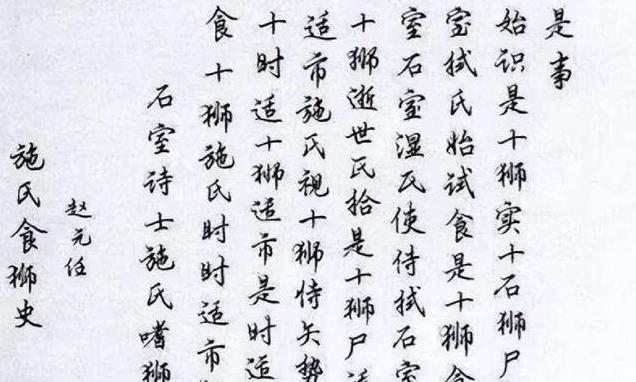 施氏食狮史
赵元任
石室诗士施氏嗜狮
食十狮施氏时时适市
十时适十狮适市是时适
适市施氏视十狮恃矢势
十狮逝世氏拾是十狮尸适
室石室湿氏使侍拭石室
室拭氏始试食是十狮食
始识是十狮实十石狮尸
是事